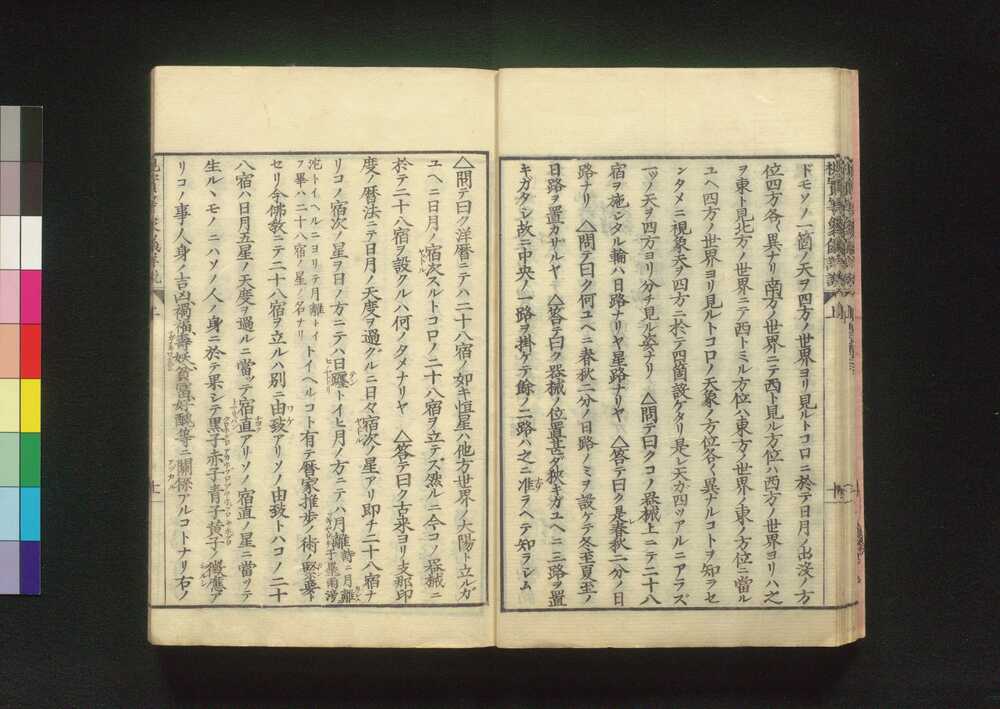 ドモソノ一箇ノ天ヲ四方ノ世界ヨリ見ルトコロニ於テ日月ノ出没ノ方
位四方各〻異ナリ南方ノ世界ニテ西ト見ル方位ハ西方ノ世界ヨリハ之
ヲ東ト見北方ノ世界ニテ西トミル方位ハ東方ノ世界ノ東ノ方位ニ當ル
ユヘ四方ノ世界ヨリ見ルトコロノ天象ノ方位各〻異ナルコトヲ知ラセ
ンタメニ視象天ヲ四方ニ於テ四箇設ケタリ是レ天カ四ツアルニアラズ
一ツノ天ヲ四方ヨリ分チ見ル姿ナリ △問テ曰クコノ器械上ニテ二十八
宿ヲ施シタル輪ハ日路ナリヤ星路ナリヤ △答テ曰ク是レ春秋二分ノ日
路ナリ △問テ曰ク何ユヘニ春秋二分ノ日路ノミヲ設ケテ冬至夏至ノ
日路ヲ置カザルヤ △答テ曰ク器械ノ位置甚ダ狹キガユヘニ三路ヲ置
キガタシ故ニ中央ノ一路ヲ掛ケテ餘ノ二路ハ之ニ准ラヘテ知ラシム
△問テ曰ク洋曆ニテハ二十八宿ノ如キ恒星ハ他方世界ノ大陽ト立ルガ
ユヘニ日月ノ宿次スルトコロノ二十八宿ヲ立テズ然ルニ今コノ器械ニ
於テ二十八宿ヲ設クルハ何ノタメナリヤ △答テ曰ク古來ヨリ支那印
度ノ曆法ニテ日月ノ天度ヲ過グルニ日々宿次ノ星アリ即チ二十八宿ナ
リコノ宿次ノ星ヲ日ノ方ニテハ日躔トイヒ月ノ方ニテハ月離詩ニ月離于畢雨滂
沱トイヘルニヨリテ月離トイフ畢ハ二十八宿ノ星ノ名ナリトイヘルコト有テ曆家推步ノ術ノ緊要ト
セリ今佛教ニテ二十八宿ヲ立ルハ別ニ由致アリソノ由致トハコノ二十
八宿ハ日月五星ノ天度ヲ過ルニ當ッテ宿直アリソノ宿直ノ星ニ當ッテ
生ルヽモノニハソノ人ノ身ニ於テ果シテ黑子赤子青子黄子ノ應ア
リコノ事人身ノ吉凶禍福壽妖貧富好醜等ニ關係アルコトナリ右ノ